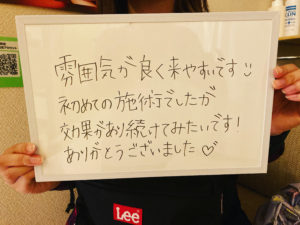 雰囲気が良く来やすいです
初めての施術でしたが
効果があり続けてみたいです！
ありがとうございました♡
Lee